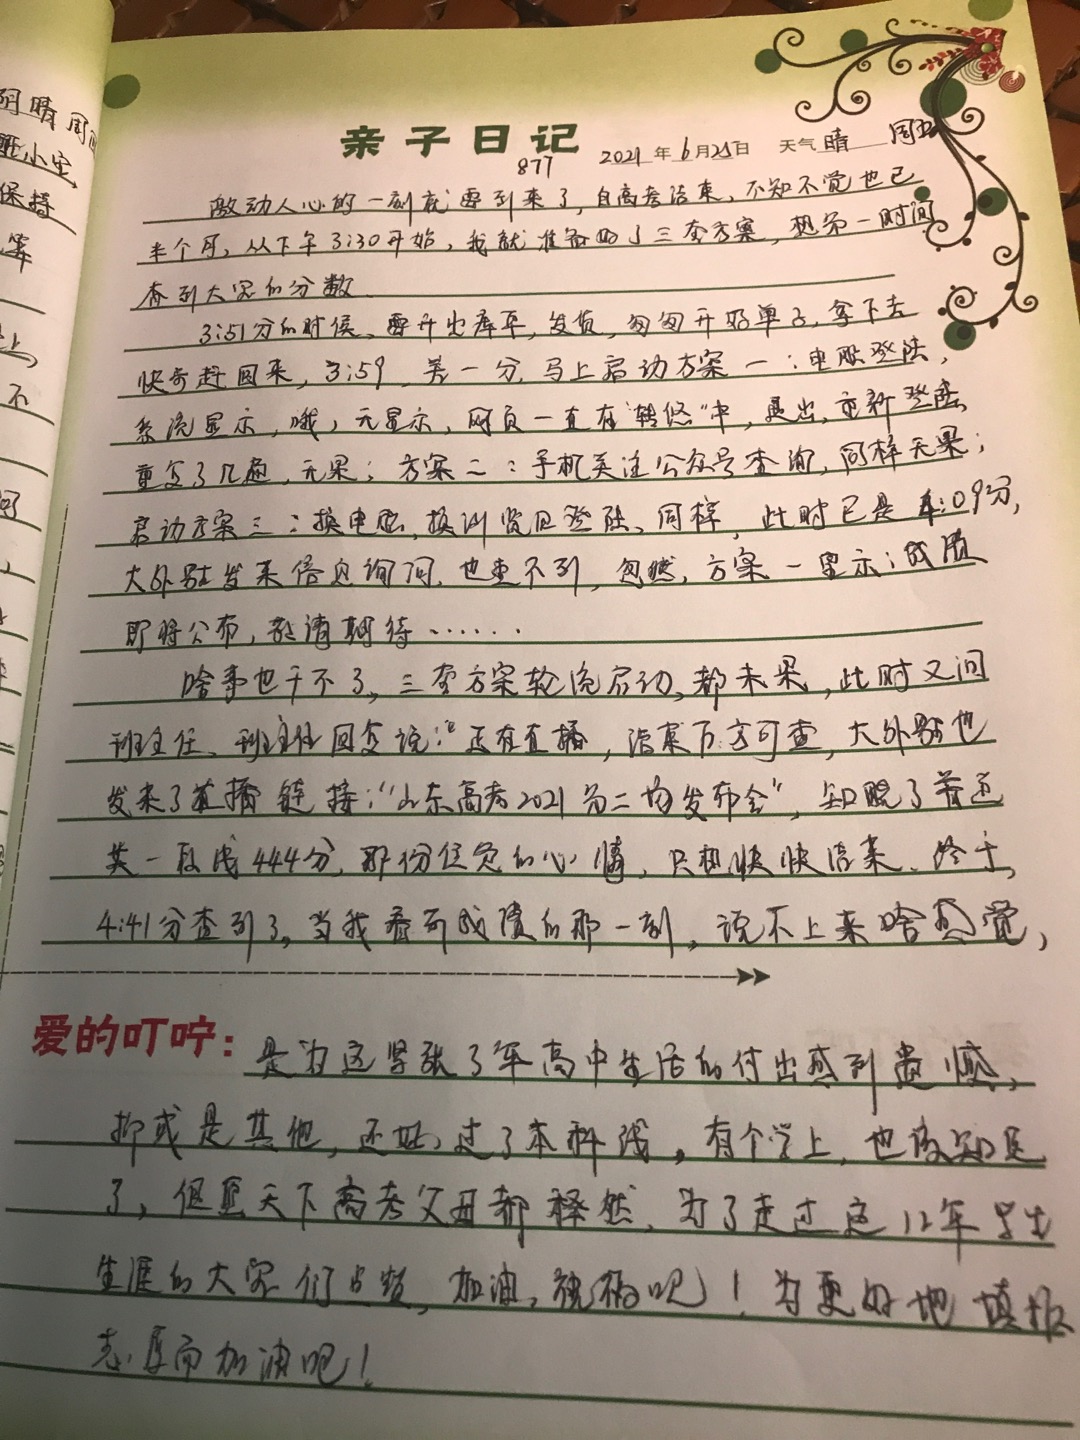 阴晴 周四
小宝
保持
亲子日记
877
2021年6月25日 天气 晴 周五
激动人心的一刻就要到来了,自高考结束,不知不觉也已
半个月,从下午3:30开始,我就准备好了三套方案,想第一时间
看到大宝的分数.
3:51分的时候,要开出库单,发货,匆匆开好单子,拿下去
快步赶回来,3:59,差一分,马上启动方案一:电脑登陆,
系统显示,哦,无显示,网页一直在"转悠"中,退出,重新登陆,
重复了几遍,无果;方案二:手机关注公众号查询,同样无果;
启动方案三:换电脑,换浏览器登陆,同样,此时已是4:09分,
大外甥发来信息询问,也查不到,忽然,方案一显示:成绩
即将公布,敬请期待……
啥事也干不了,三套方案轮流启动,都未果,此时又问
班主任,班主任回复说:"正在直播,结束后方可查,大外甥也
发来了直播链接:"山东高考2021第二场发布会",知晓了普通
类一段线444分,那份狂热的心情,只想快快结束.终于,
4:41分查到了,当我看到成绩的那一刻,说不上来啥感觉,
爱的叮咛:
是为这紧张了3年高中生活的付出感到遗憾,
抑或是其他,还好,过了本科线,有个学上,也该知足
了,但愿天下高考父母都释然,为了走过这12年学生
生涯的大宝们点赞,加油,祝福吧!为更好地填报
志愿而加油吧!